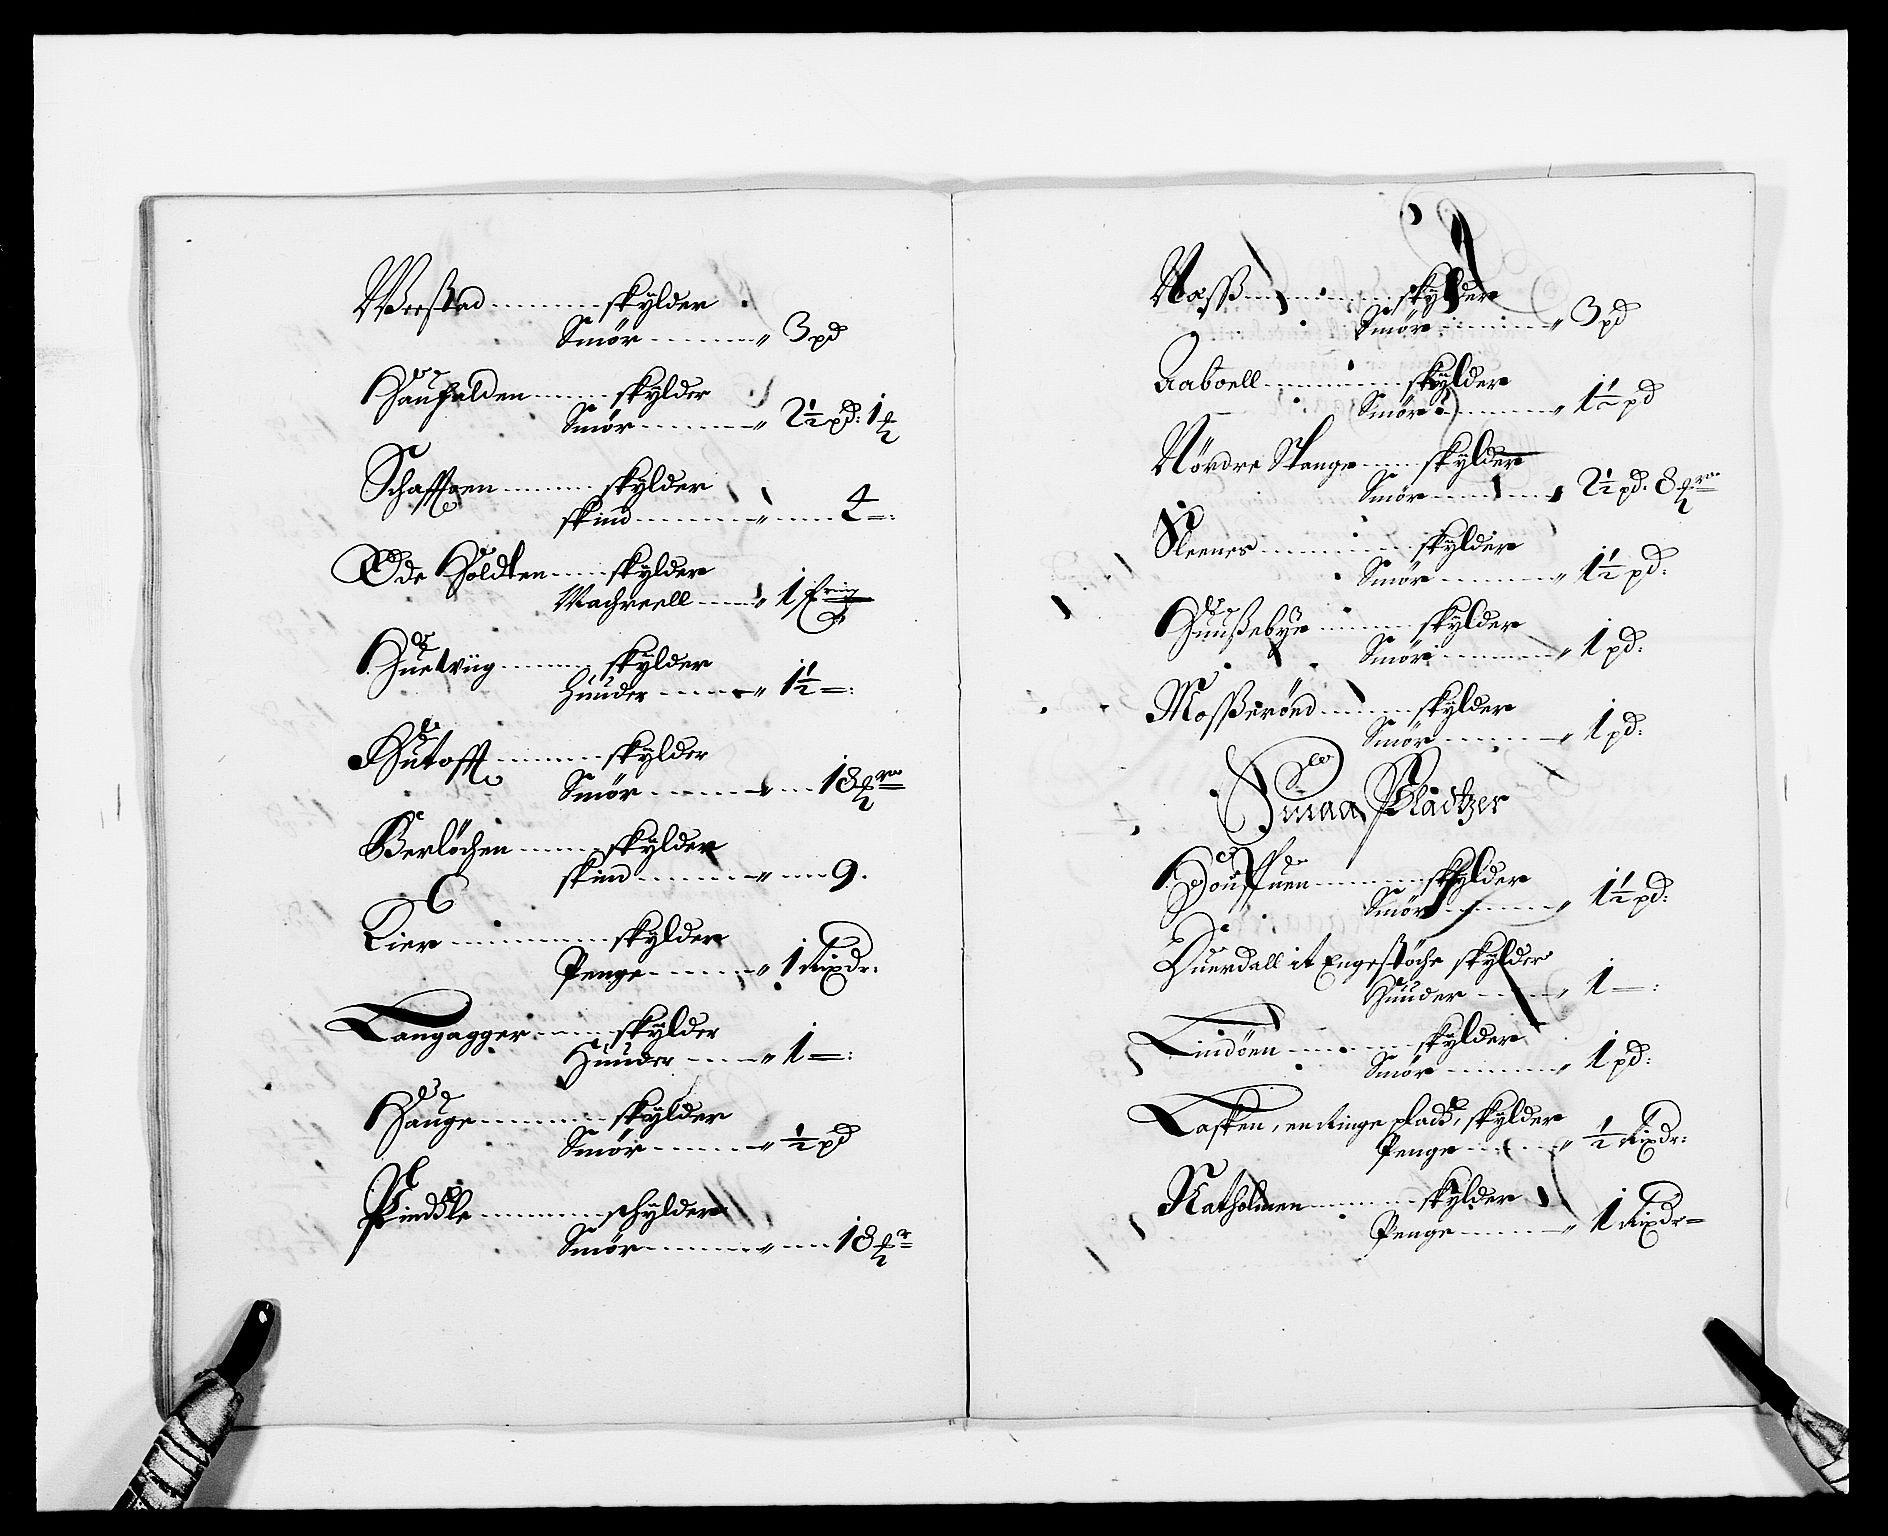 Werstad ......... skylder
Smör ......... " 3 pd
Haufalden ...... skylder
Smör ......... " 2½ pd: 1 ℔
Schaffoen ......... skylder
skind ......... " ..... 4 =:
Öde Holdten ..... skylder
Machreell ..... " 1
Huetviig ........ skylder
Huuder ...... " 1½ =:
Hutoff ......... skylder
Smör ......... " .... 18 ℔r
Berlöchen ....... skylder
skind ......... " .... 9.
Lier ............ skylder
Penge ....... " 1 Rixdr:
Langagger ..... skylder
Huuder ..... " 1 =:
Hauge ......... skylder
Smör ........ " ½ pd
Pinddle ......... schylder
Smör ......... " .... 18 ℔r
Næss ............ skylder
Smör ......... " 3 pd
Aaboell ......... skylder
Smör ......... " 1½ pd
Nördre Stange ..... skylder
Smör ......... " 2½ pd. 8 ℔r
Sleenes ......... skylder
Smör ......... " 1½ pd:
Huußebye ......... skylder
Smör ......... " 1 pd:
Moßerönd ....... skylder
Smör ......... " 1 pd:
Smaa Pladtzer
Houffuen ......... skylder
Smör ......... " 1½ pd:
Duerdall it Engestöche skylder
Huuder ..... " 1 =:
Lindöen ......... skylder
Smör ......... " 1 pd:
Lasken, en Ringe pladtz, skylder
Penge ..... " ½ Rixdr:
Ratholmen ......... skylder
Penge ....... " 1 Rixdr =